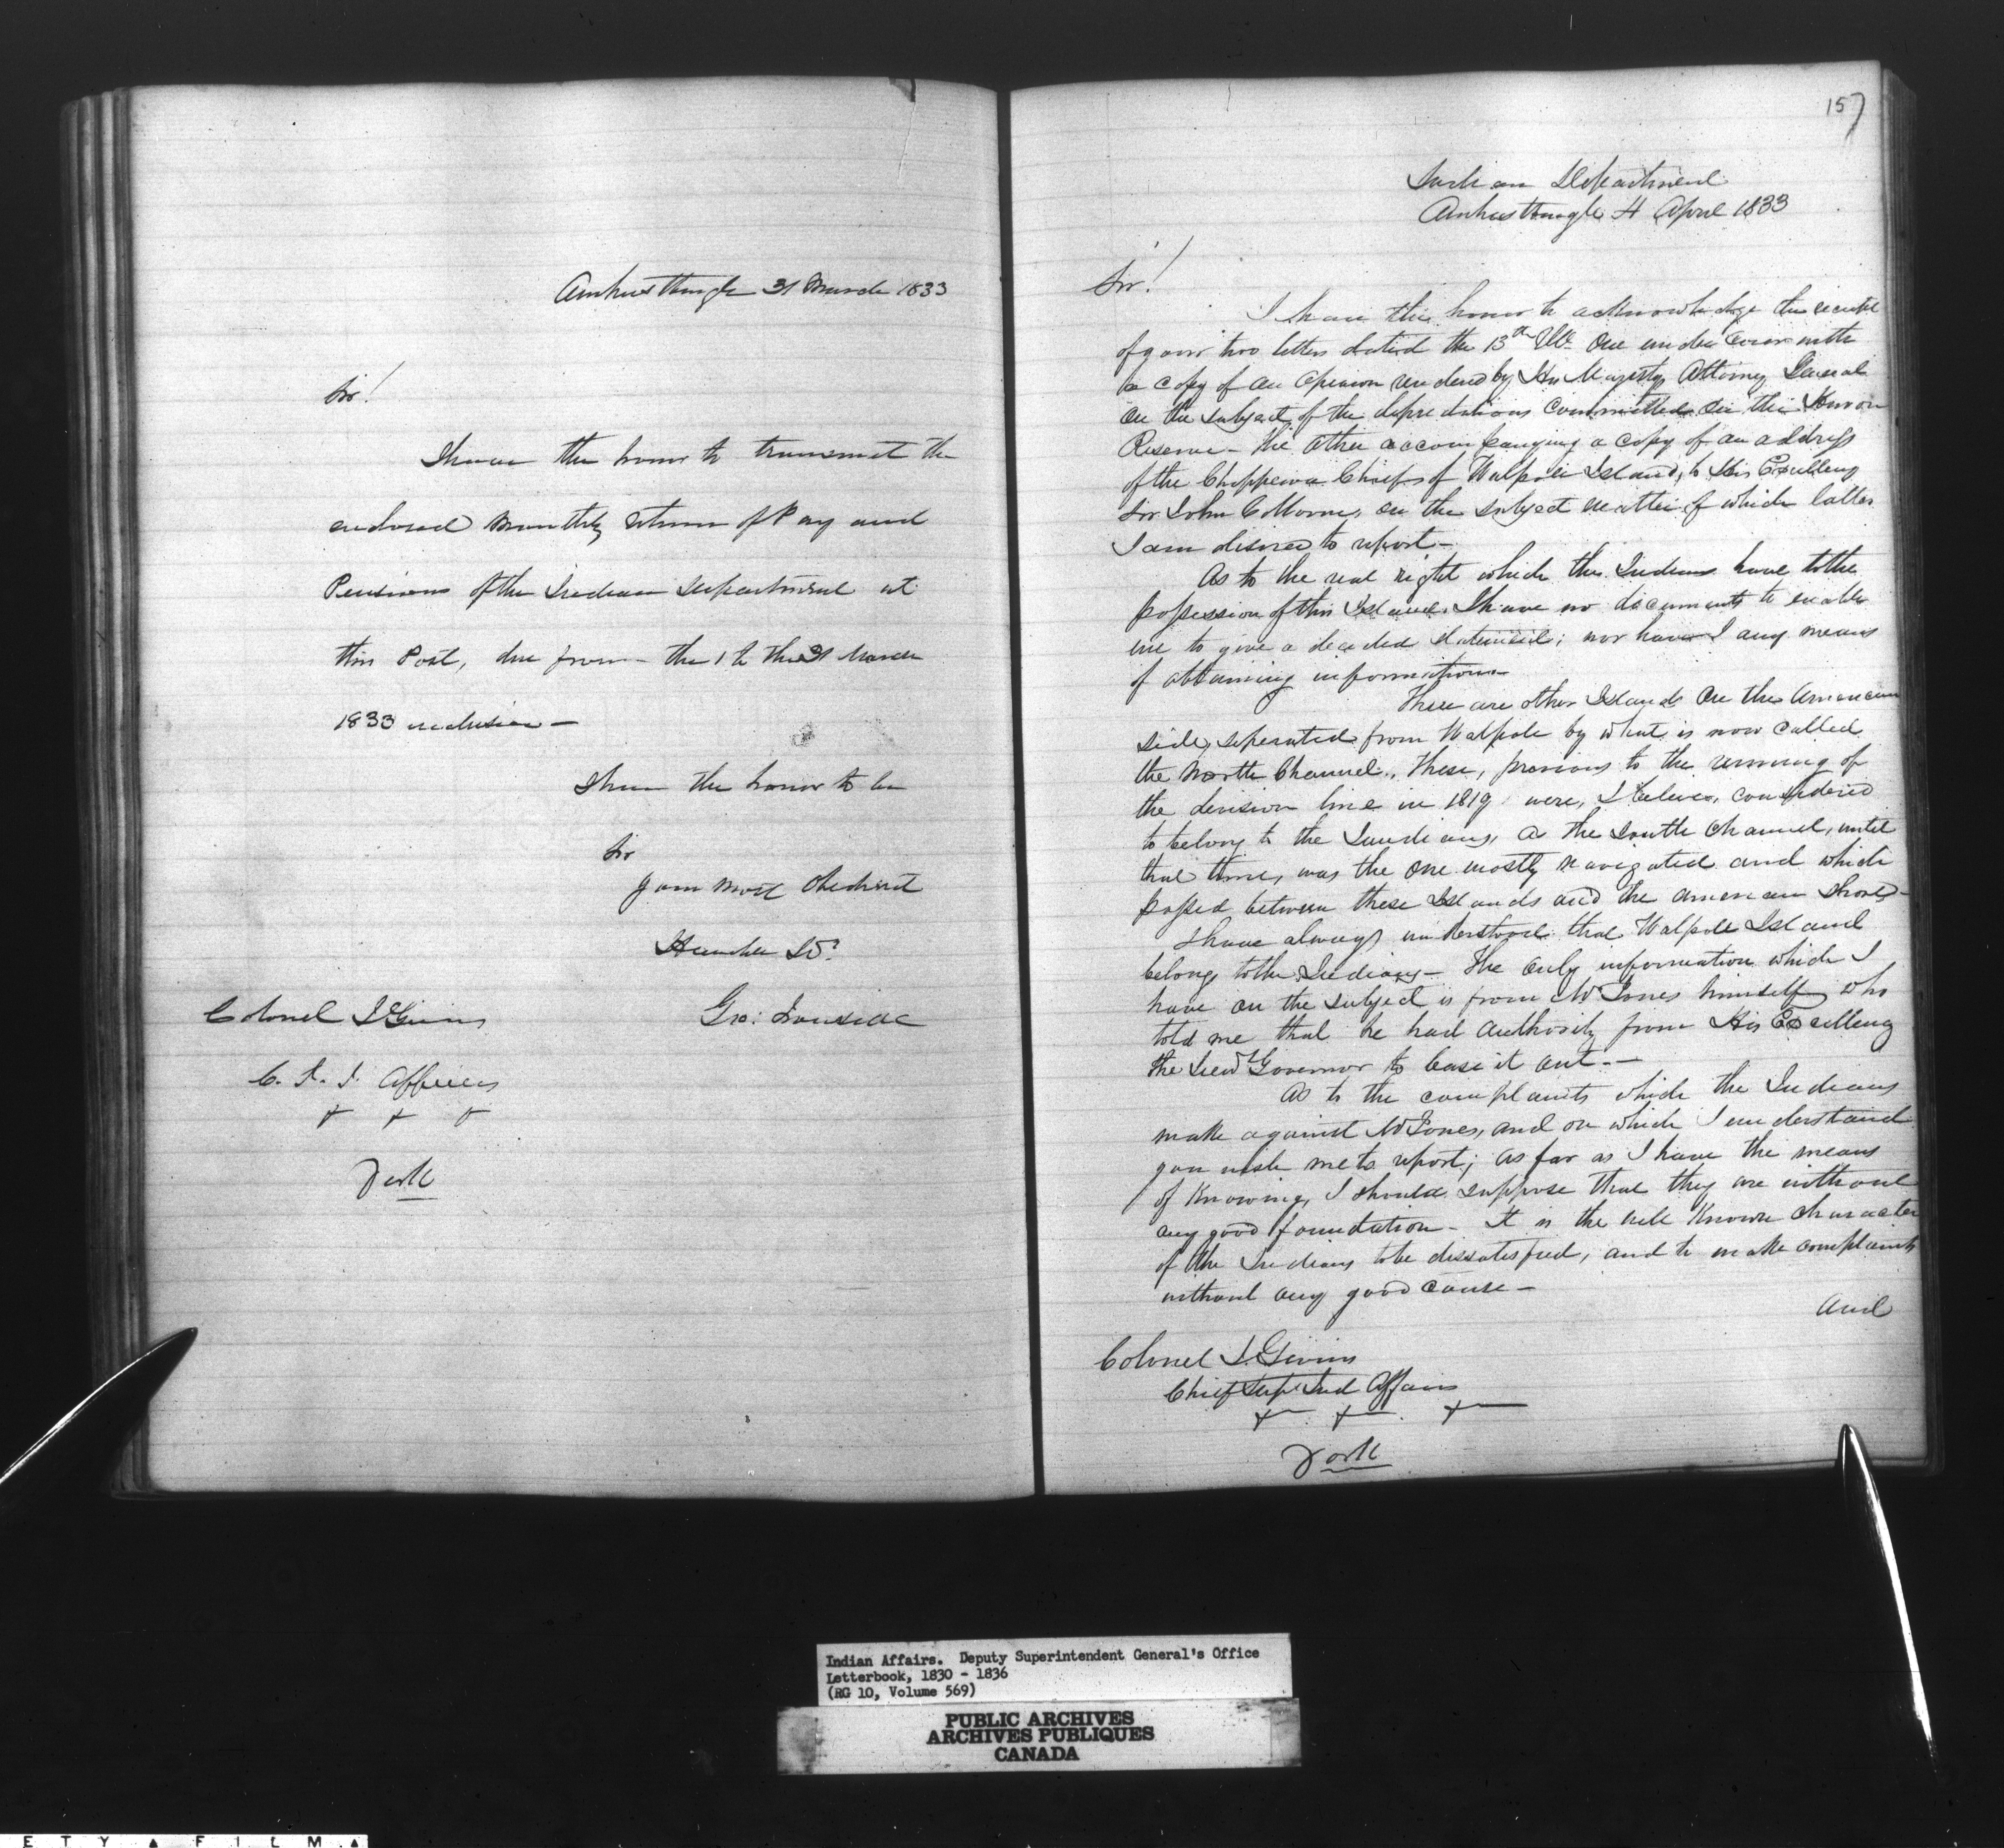 Amherstburgh 31 March 1833
Sir!
I have the honor to transmit the
enclosed monthly return of Pay and
Pensions of the Indian Department at
this Post, due from the 1 to the 31 March
1833 inclusive —
I have the honor to be
Sir
your most obedient
Humble Sv^t
Geo: Ironside
Colonel J Givins
C. S. I. Affairs
+ + +
York
157
Indian Department
Amherstburgh 4 April 1833
Sir!
I have the honor to acknowledge the receipt
of your two letters dated the 13th Ult. One under cover with
a copy of an opinion rendered by His Majestys Attorney General
on the subject of the depredations committed on the Huron
Reserve – the other accompanying a copy of an address
of the Chippewa Chiefs of Walpole Island, to His Excellency
Sir John Colborne, on the subject matter of which latter
I am desired to report –
As to the real right which the Indians have to the
possession of this Island. I have no documents to enable
me to give a decided statement; nor have I any means
of obtaining information
There are other Islands on the American
side, seperated from Walpole by what is now called
the North Channel. These, previous to the running of
the division line in 1819 were, I believe, considered
to belong to the Indians, as the South Channel, until
that time, was the one mostly navigated and which
passed between these Islands and the American Shore –
I have always understood that Walpole Island
belongs to the Indians – The only information which I
have on the subject is from Mr Jones himself, who
told me that he had authority from His Excellency
the Lieut Governor to lease it out –
As to the complaints which the Indians
make against Mr Jones, and on which I understand
you wish me to report; as far as I have the means
of knowing, I should suppose that they are without
any good foundation – It is the well known character
of the Indians to be dissatisfied, and to make complaints
without any good cause –
And
Colonel J. Givins
Chief Supt Ind Affairs
+ + +
York
Indian Affairs. Deputy Superintendent General's Office
Letterbook, 1830 - 1836
(RG 10, Volume 569)
PUBLIC ARCHIVES
ARCHIVES PUBLIQUES
CANADA
E T Y A F I L M